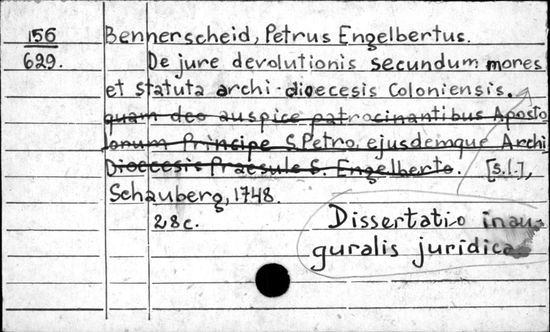 156
629.
Bennerscheid, Petrus Engelbertus.
De jure devolutionis secundum mores
et statuta archi-dioecesis Coloniensis.
quam deo auspice patrocinantibus Aposto
lorum Principe S. Petro, ejusdemque Archi
Dioecesis Praesule S. Engelberto. [s.l.],
Schauberg, 1748.
28c.
Dissertatio inau-
guralis juridica